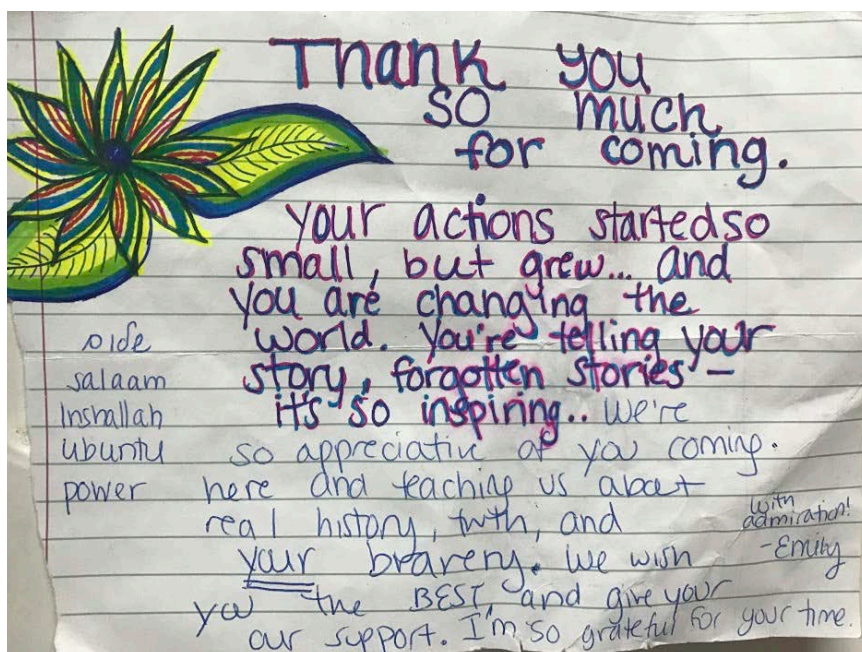 Thank you
so much
for coming.
your actions started so
small, but grew... and
you are changing the
world. You're telling your
story, forgotten stories –
it's so inspiring.. We're
so appreciative of you coming.
here and teaching us about
real history, truth, and
your bravery. We wish
you the BEST and give your
our support. I'm so grateful for your time.
with
admiration!
-Emily
salaam
Inshallah
ubuntu
power